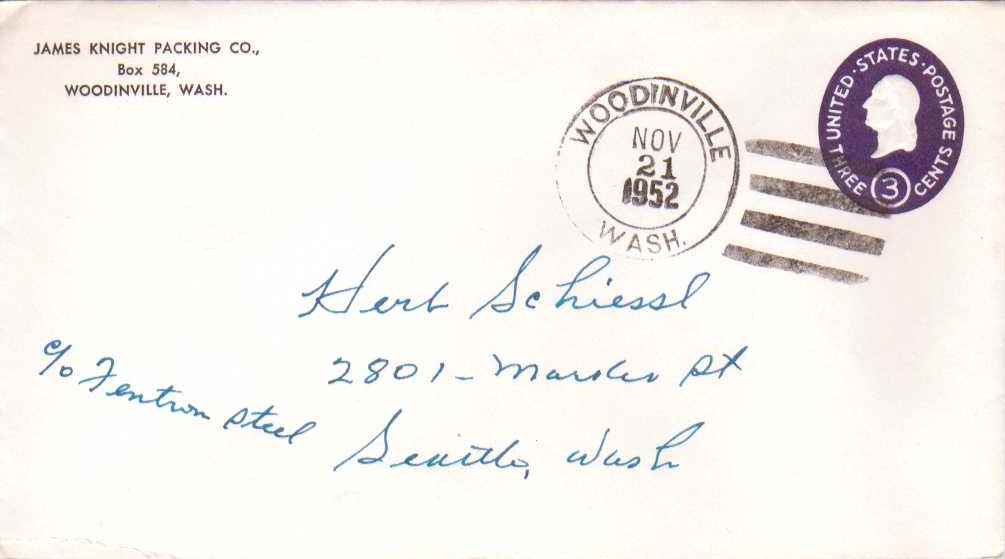 JAMES KNIGHT PACKING CO.,
Box 584,
WOODINVILLE, WASH.
WOODINVILLE
NOV
21
1952
WASH.
UNITED·STATES·POSTAGE
THREE 3 CENTS
Herb Schiessl
2801 - Market St
c/o Fentron Steel
Seattle, Wash